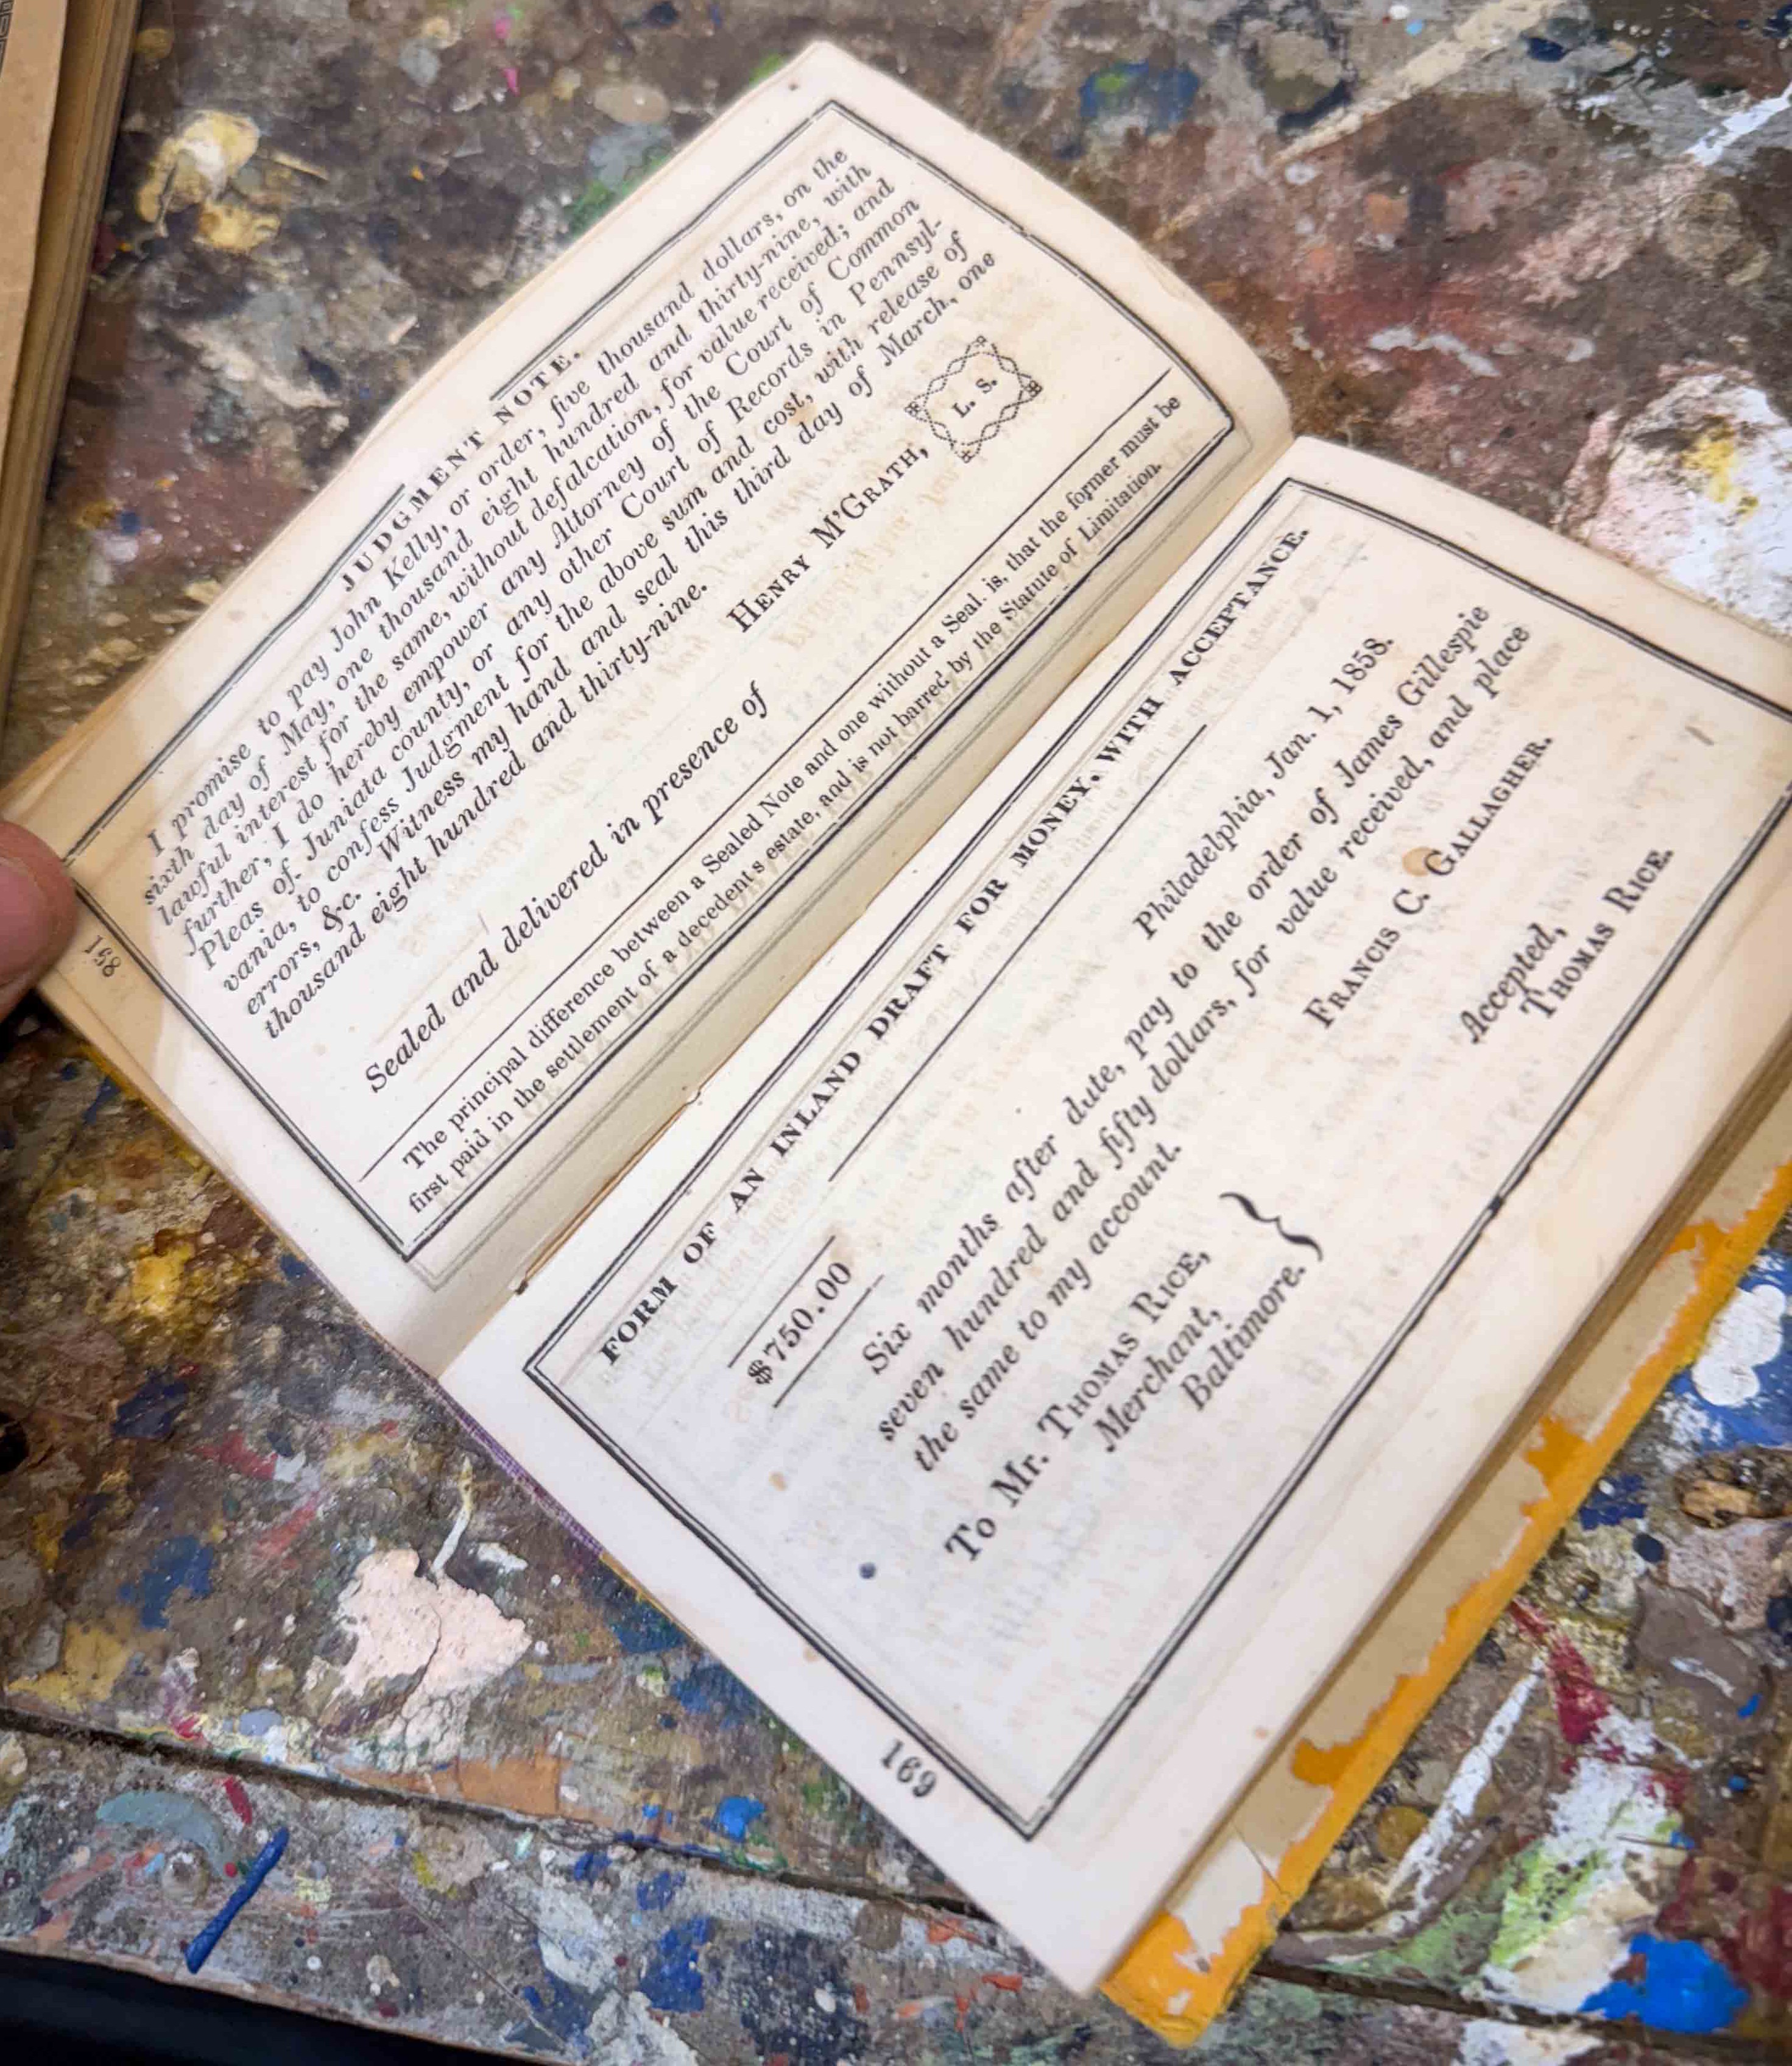 JUDGMENT NOTE.
I promise to pay John Kelly, or order, five thousand dollars, on the
sixth day of May, one thousand eight hundred and thirty-nine, with
lawful interest for the same, without defalcation, for value received; and
further, I do hereby empower any Attorney of the Court of Common
Pleas of Juniata county, or any other Court of Records in Pennsyl-
vania, to confess Judgment for the above sum and cost, with release of
errors, &c. Witness my hand and seal this third day of March, one
thousand eight hundred and thirty-nine.
HENRY M'GRATH,
L. S.
Sealed and delivered in presence of
The principal difference between a Sealed Note and one without a Seal. is, that the former must be
first paid in the settlement of a decedent's estate, and is not barred by the Statute of Limitation.
168
FORM OF AN INLAND DRAFT FOR MONEY, WITH ACCEPTANCE.
$750.00
Philadelphia, Jan. 1, 1858.
Six months after date, pay to the order of James Gillespie
seven hundred and fifty dollars, for value received, and place
the same to my account.
FRANCIS C. GALLAGHER.
To Mr. THOMAS RICE,
Merchant,
Baltimore.
Accepted,
THOMAS RICE.
169